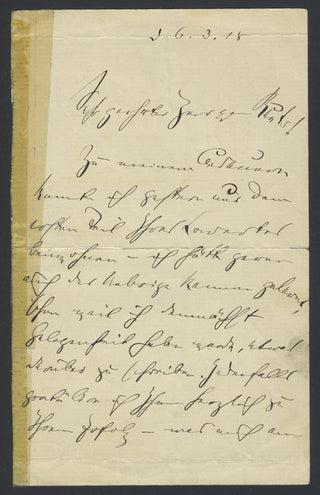 d 6.3.18
Sehr geehrter Herr
Zu meinem Bedauern
konnte ich gestern nur dem
ersten Teil Ihres Konzertes
beiwohnen – ich hätte gerne
auch das Uebrige kennen gelernt,
schon weil ich demnächst
Gelegenheit haben werde, etwas
darüber zu schreiben. Jedenfalls
gratuliere ich Ihnen herzlich zu
Ihrem Erfolg – was mich am